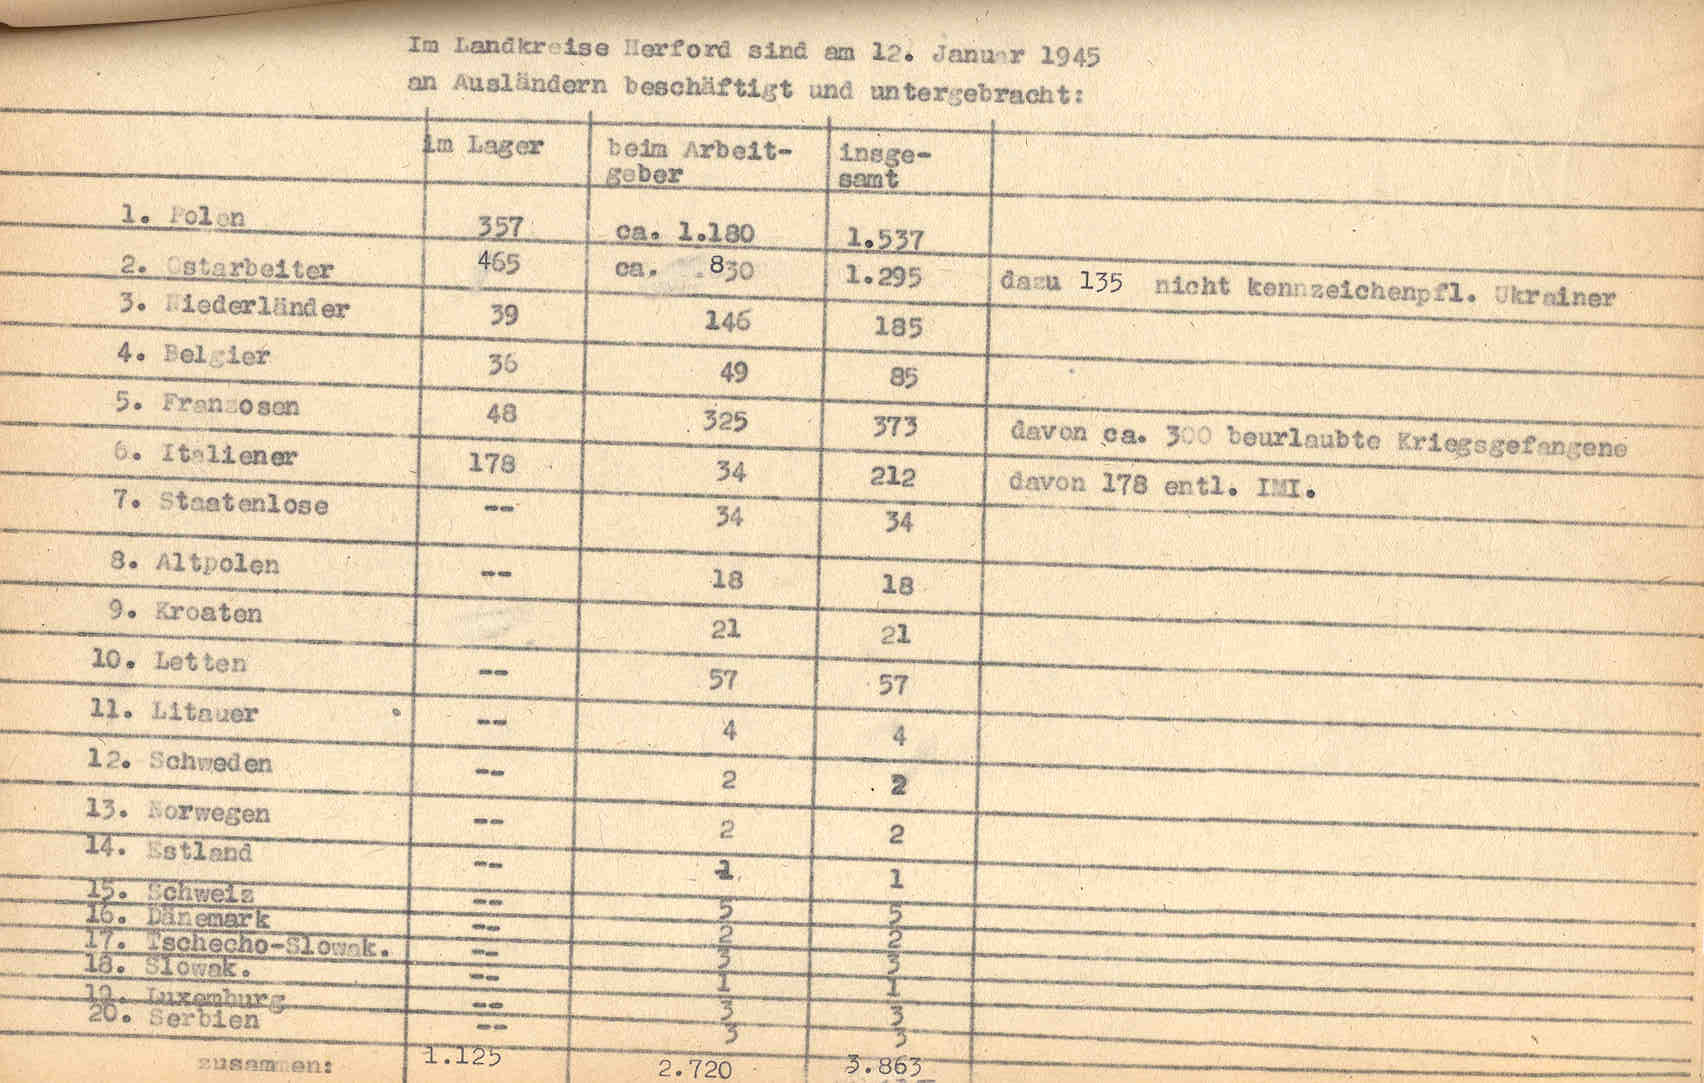 Im Landkreise Herford sind am 12. Januar 1945
an Ausländern beschäftigt und untergebracht:
im Lager beim Arbeit- insge-
geber samt
1. Polen 357 ca. 1.180 1.537
2. Ostarbeiter 465 ca. 830 1.295 dazu 135 nicht kennzeichenpfl. Ukrainer
3. Niederländer 39 146 185
4. Belgier 36 49 85
5. Franzosen 48 325 373 davon ca. 300 beurlaubte Kriegsgefangene
6. Italiener 178 34 212 davon 178 entl. IMI.
7. Staatenlose -- 34 34
8. Altpolen -- 18 18
9. Kroaten 21 21
10. Letten -- 57 57
11. Litauer -- 4 4
12. Schweden -- 2 2
13. Norwegen -- 2 2
14. Estland -- 1 1
15. Schweiz -- 5 5
16. Dänemark -- 2 2
17. Tschecho-Slowak. -- 3 3
18. Slowak. -- 1 1
19. Luxemburg -- 3 3
20. Serbien -- 3 3
zusammen: 1.125 2.720 3.863